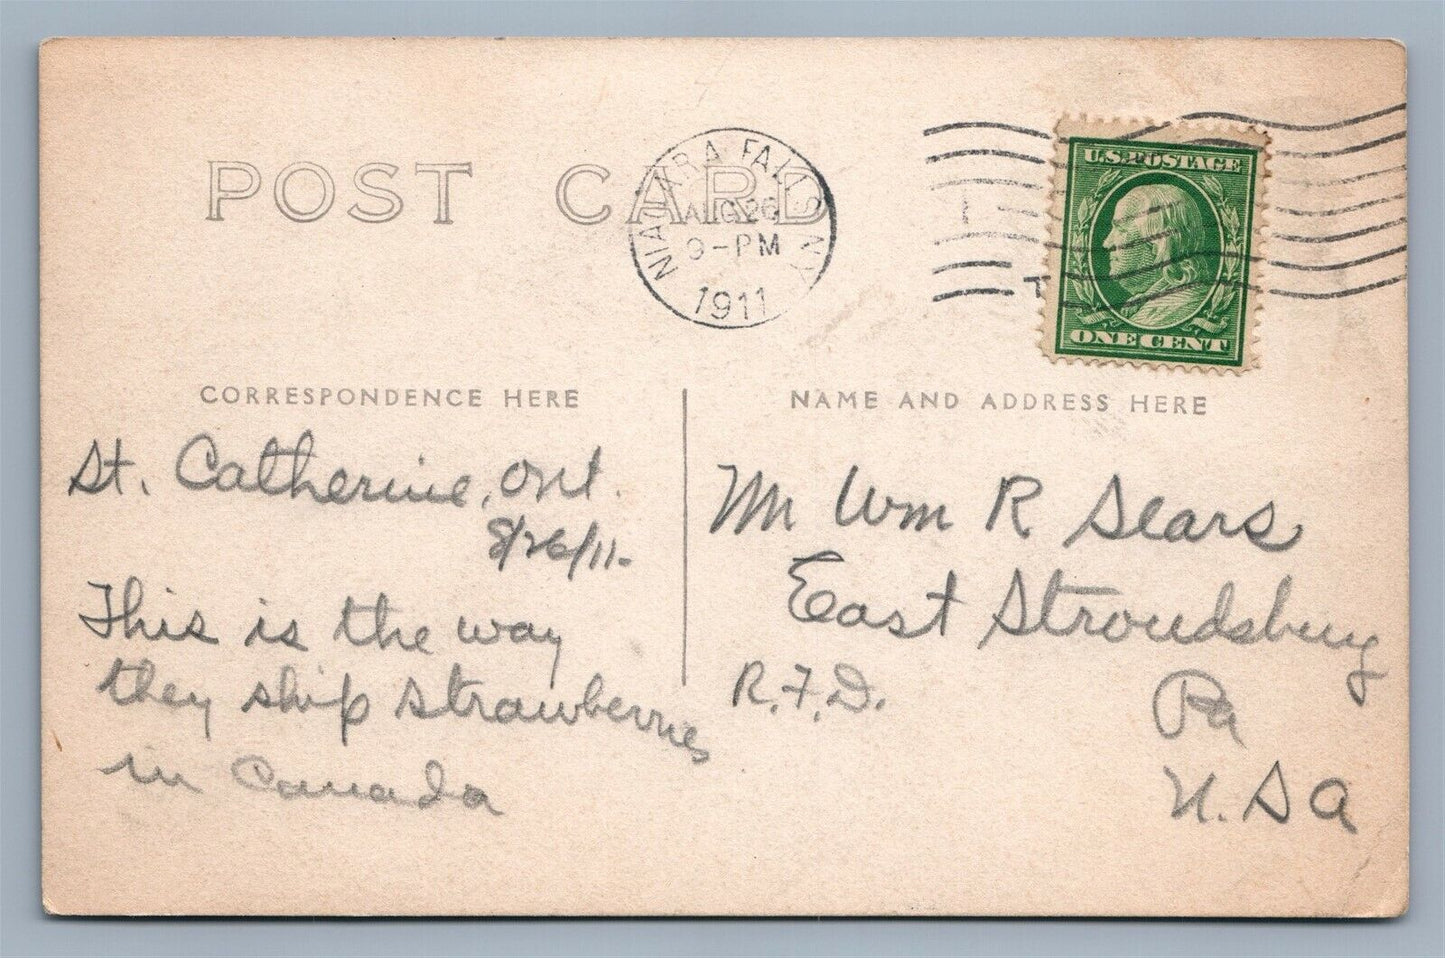 POST CARD
NIAGARA FALLS N.Y.
AUG 26
9-PM
1911
U.S. POSTAGE
ONE CENT
CORRESPONDENCE HERE
NAME AND ADDRESS HERE
St. Catherine, Ont.
8/26/11.
This is the way
they ship strawberries
in Canada
Mr Wm R Sears
East Stroudsburg
R.F.D.
Pa
U.SA